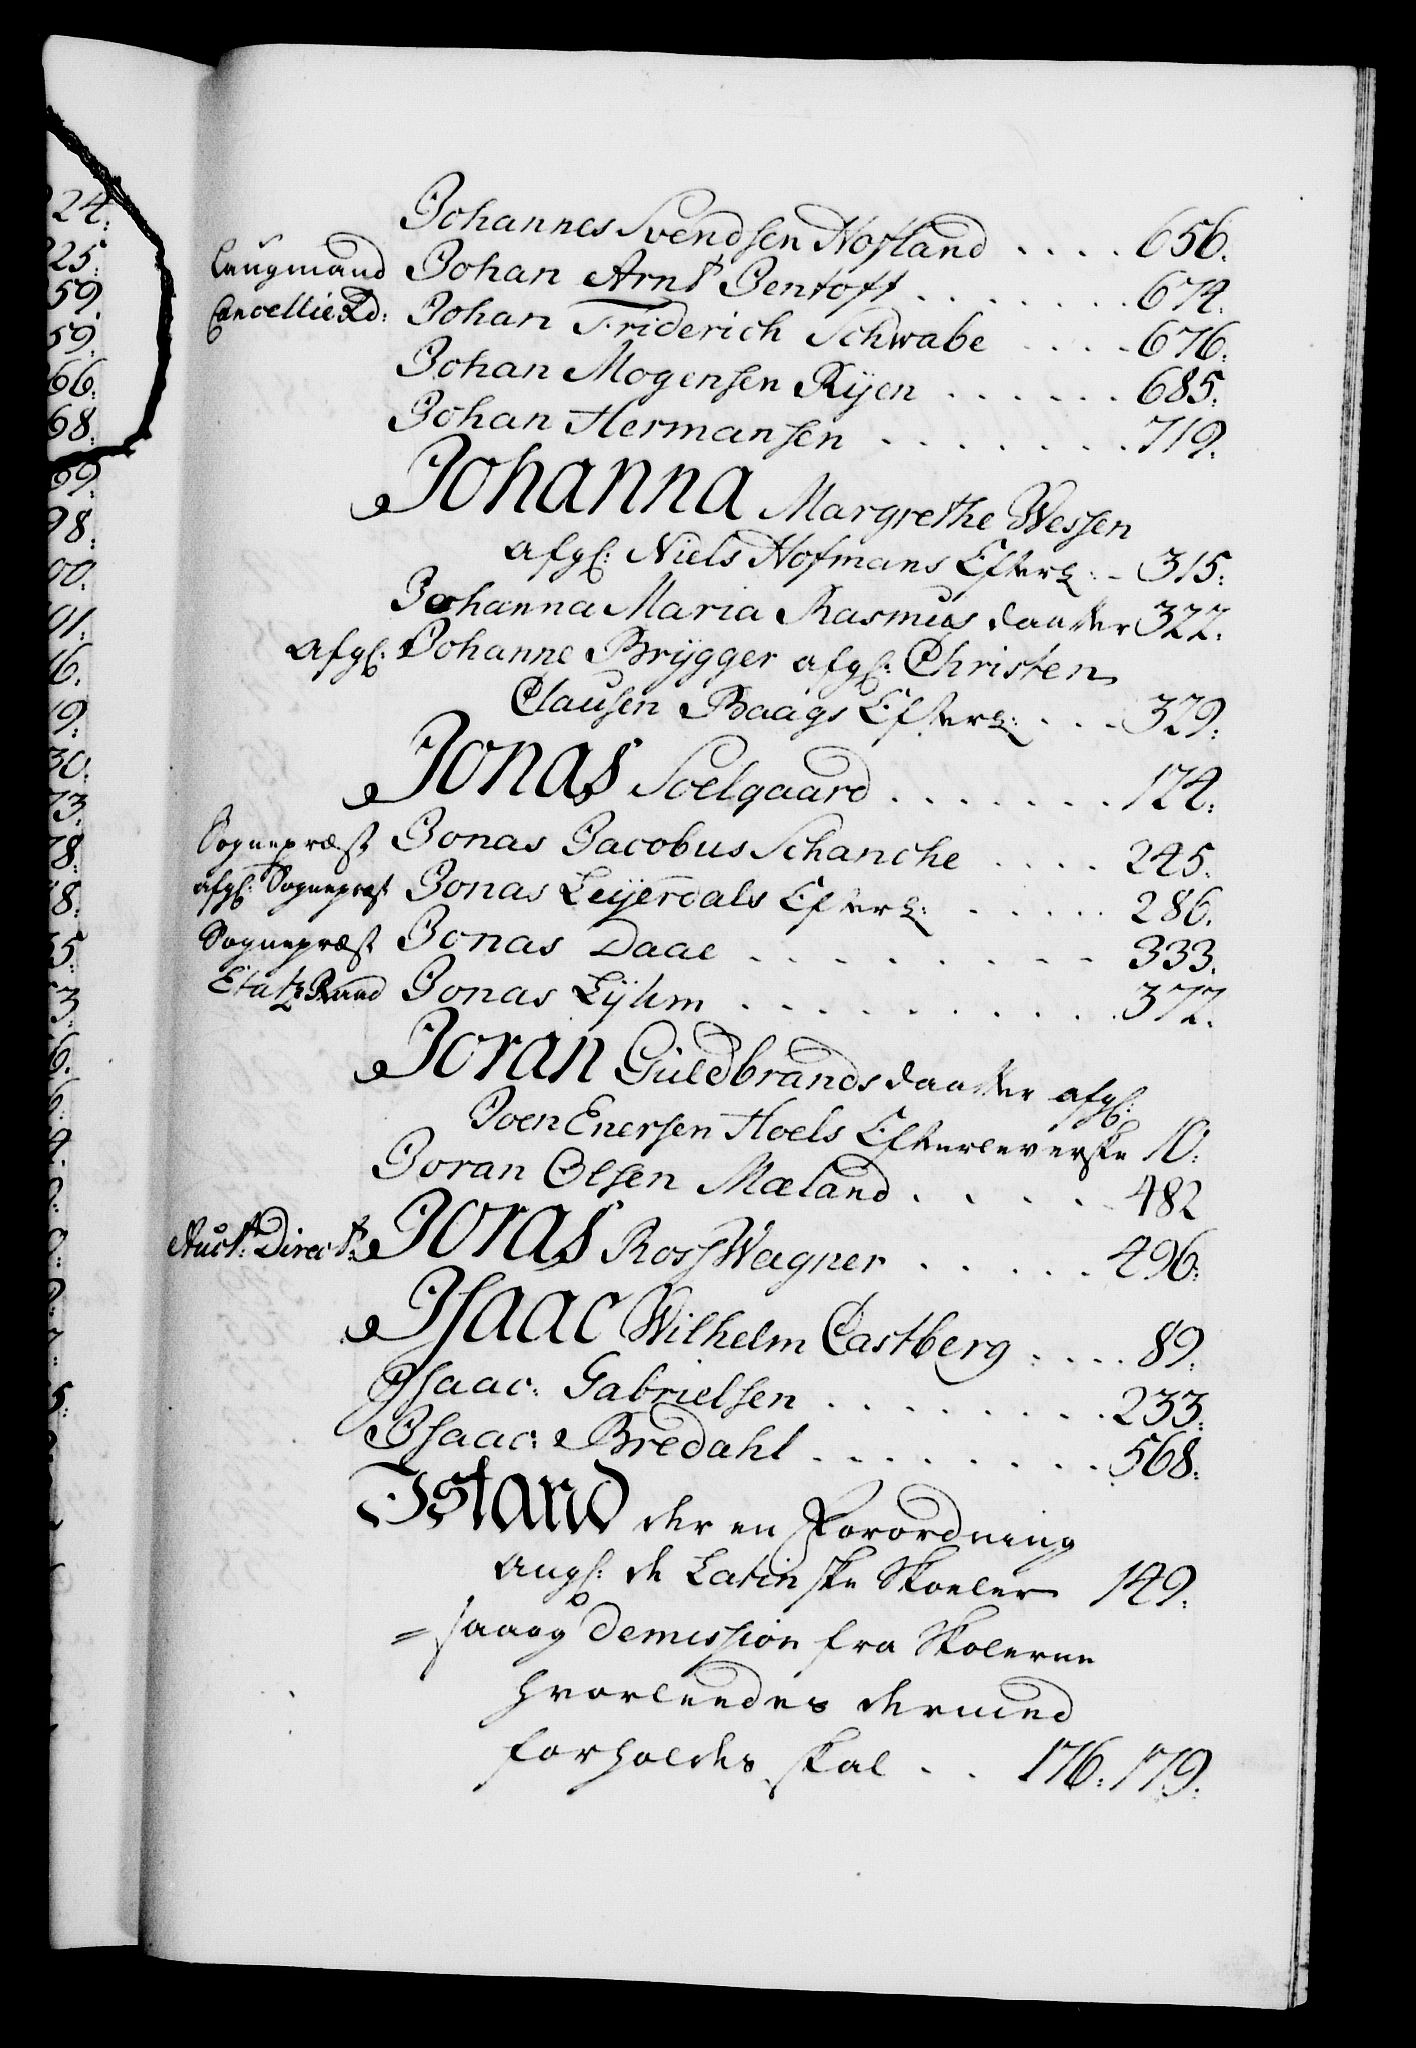 Johannes Svendsen Hofland . . . . 656.
Laugmand Johan Arnt Pentoft . . . . . . . . 674.
CancellieRd: Johan Friderich Schwabe . . . . 676.
Johan Mogensen Rÿen . . . . . . 685.
Johan Hermansen . . . . . . . . 719.
Johanna Margrethe Wessen
afgl: Niels Hofmans Efterl: . 315.
Johanna Maria Rasmus daatter 322.
afgl: Johanne Brÿgger afgl: Christen
Clausen Baags Efterl: . . . 329.
Jonas Soelgaard . . . . . . . 124.
Sognepræst Jonas Jacobus Schanche . . . . 245.
afgl: Sognepræst Jonas Leÿerdals Efterl: . . . . . 286.
Sognepræst Jonas Daae . . . . . . . . . 333.
EtatzRaad Jonas Lÿhm . . . . . . . . . . 372.
Joran Guldbrands daatter afgl:
Joen Enersen Hoels Efterleverske 10:
Joran Olsen Mæland . . . . . 482
Auct: Direct: Joras Ross Wagner . . . . . 496:
Isaac Wilhelm Castberg . . . . 89:
Isaac: Gabrielsen . . . . . . . . 233:
Isaac: Bredahl . . . . . . . . 568:
Island der en Forordning
angl: de Latinske Skoeler 149:
= saaog Demission fra Skolerne
hvorleedes dermed
forholdes skal . . 176: 179: